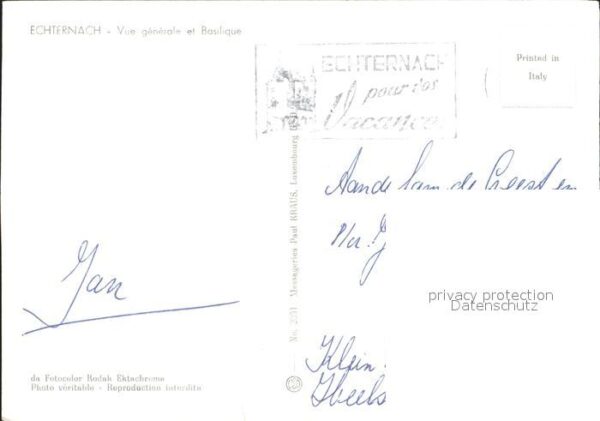 ECHTERNACH - Vue générale et Basilique
ECHTERNACH
pour vos
Vacances
Printed in
Italy
Aan de fam. de
en
Jan
privacy protection
Datenschutz
Klein
No. 2031 Messageries Paul KRAUS, Luxembourg
da Fotocolor Kodak Ektachrome
Photo véritable - Reproduction interdite